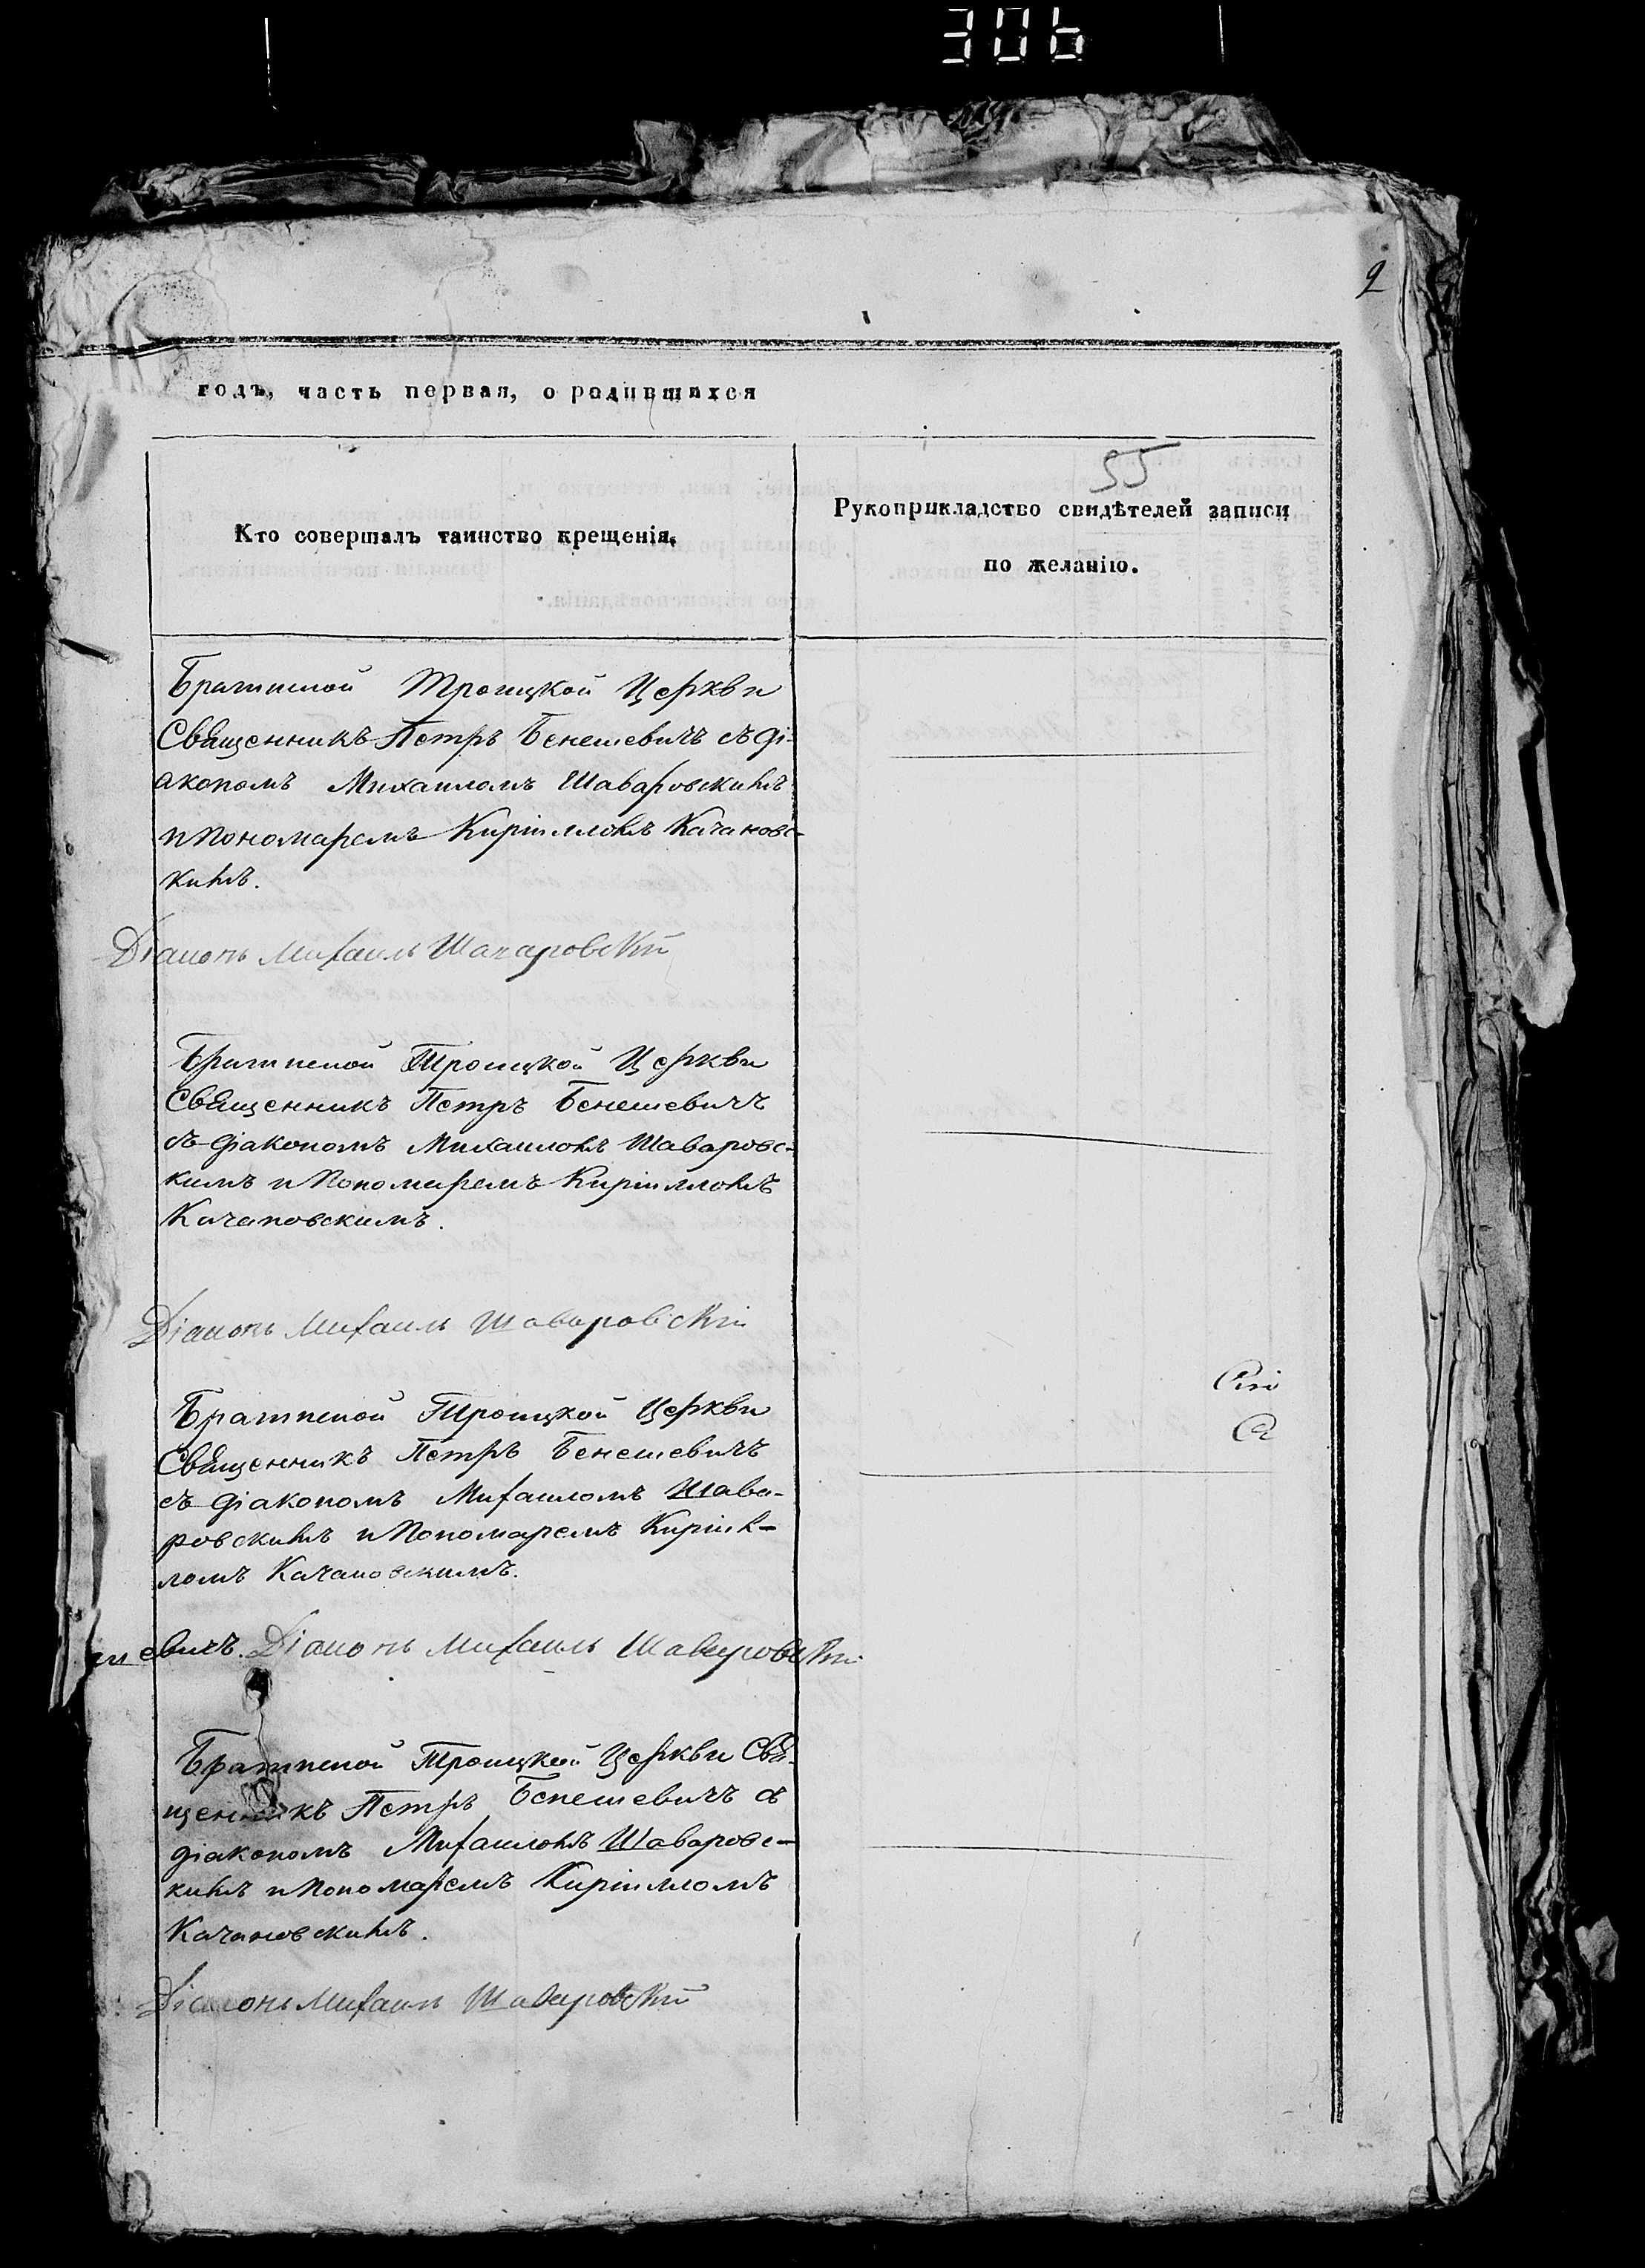 306
2
годъ, часть первая, о родившихся
55
Кто совершалъ таинство крещенія.
Рукоприкладство свидѣтелей записи
по желанію.
Троицкой Церкви
Священникъ Петръ Бенешевичъ съ Ді-
акономъ Михаиломъ Шаваровскимъ
и Пономаремъ Кирилломъ Качановс-
кимъ.
Діаконъ Михаилъ Шаваровскій
Троицкой Церкви
Священникъ Петръ Бенешевичъ
съ Діакономъ Михаиломъ Шаваровс-
кимъ и Пономаремъ Кирилломъ
Качановскимъ.
Діаконъ Михаилъ Шаваровскій
Троицкой Церкви
Священникъ Петръ Бенешевичъ
съ Діакономъ Михаиломъ Шава-
ровскимъ и Пономаремъ Кирил-
ломъ Качановскимъ.
евичъ. Діаконъ Михаилъ Шаваровскій
Троицкой Церкви Свя-
щенникъ Петръ Бенешевичъ съ
діакономъ Михаиломъ Шаваровс-
кимъ и Пономаремъ Кирилломъ
Качановскимъ.
Діаконъ Михаилъ Шаваровскій